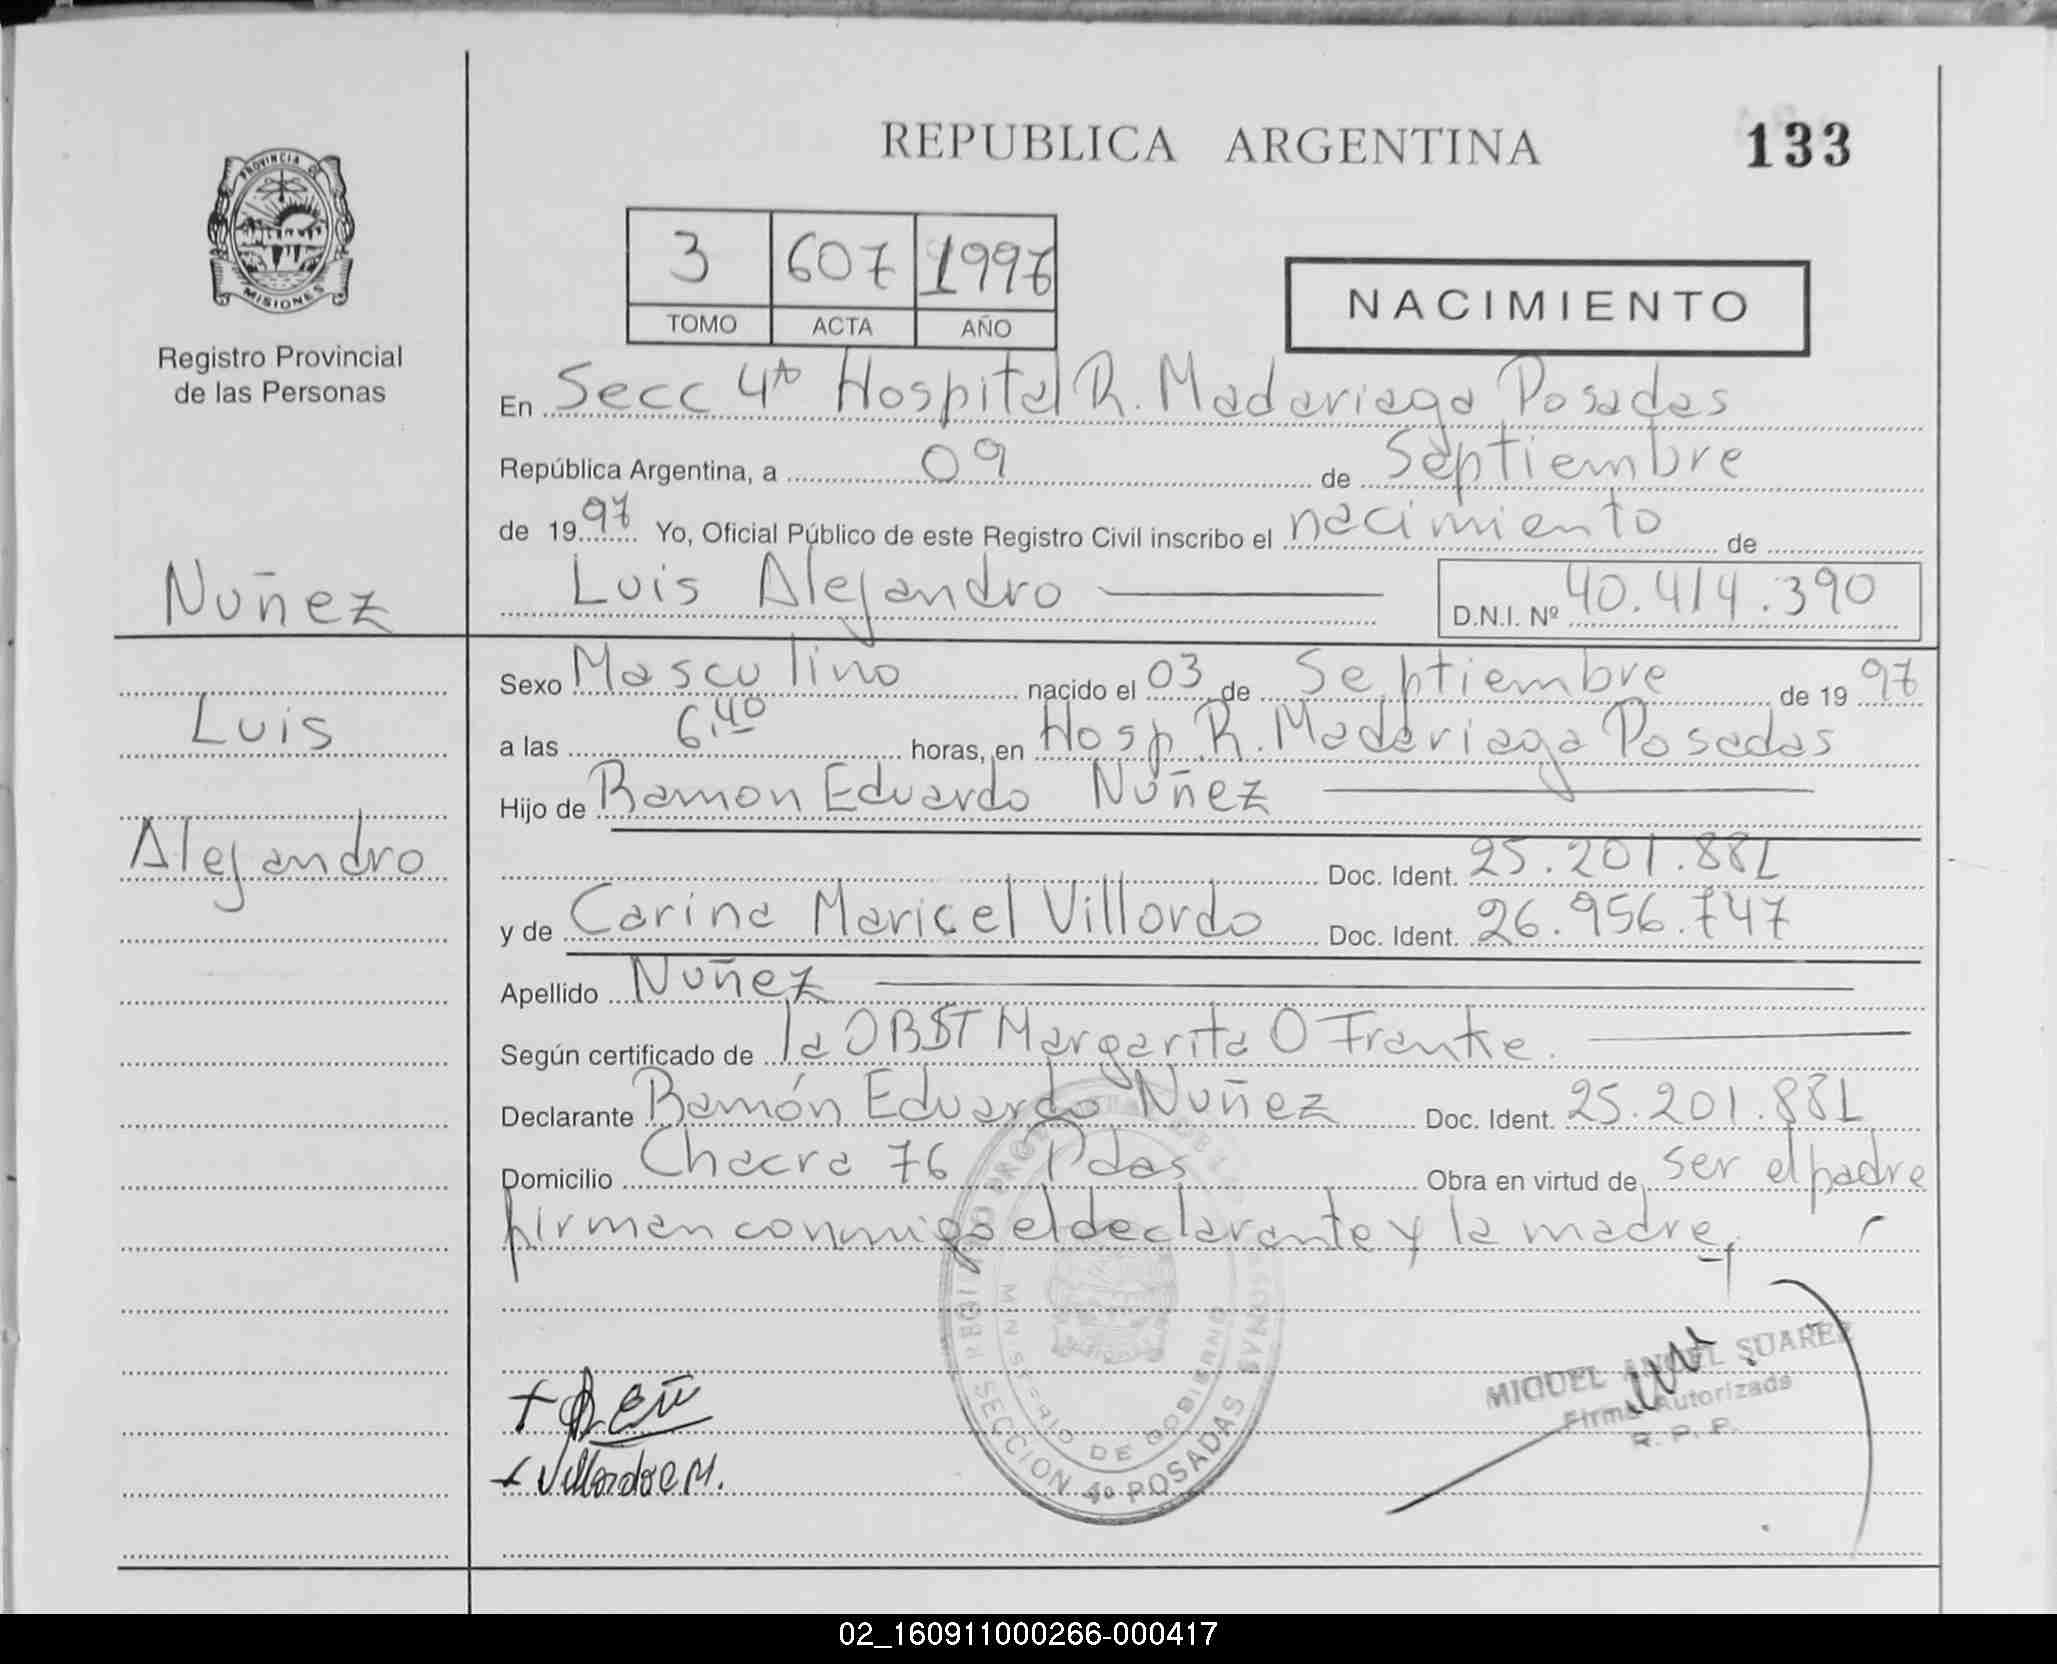 REPUBLICA ARGENTINA
133
PROVINCIA DE
MISIONES
Registro Provincial
de las Personas
3 607 1997
TOMO ACTA AÑO
NACIMIENTO
En Secc 4ta Hospital R. Madariaga Posadas
República Argentina, a 09 de Septiembre
de 1997 Yo, Oficial Público de este Registro Civil inscribo el nacimiento de
Luis Alejandro D.N.I. Nº 40.414.390
Nuñez
Luis
Alejandro
Sexo Masculino nacido el 03 de Septiembre de 1997
a las 6.40 horas, en Hosp R. Madariaga Posadas
Hijo de Ramon Eduardo Nuñez
Doc. Ident. 25.201.881
y de Carina Maricel Villordo Doc. Ident. 26.956.747
Apellido Nuñez
Según certificado de la OBST Margarita O Franke.
Declarante Ramón Eduardo Nuñez Doc. Ident. 25.201.881
Domicilio Chacra 76 Pdas Obra en virtud de ser el padre
firman conmigo el declarante y la madre,
MINISTERIO DE GOBIERNO
SECCION 4º POSADAS
MIGUEL ANGEL SUAREZ
Firma Autorizada
R. P. P.
Villordo C M.
02_160911000266-000417